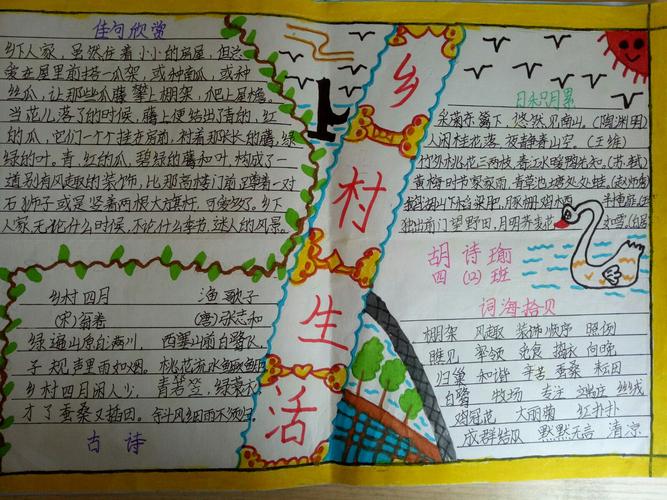 佳句欣赏
乡下人家，虽然住着小小的房屋，但总
爱在屋前搭一瓜架，或种南瓜，或种
丝瓜，让那些瓜藤攀上棚架，爬上屋檐。
当花儿落了的时候，藤上便结出了青的，红
的瓜，它们一个个挂在房前，衬着那长长的藤，绿
绿的叶。青，红的瓜，碧绿的藤和叶，构成了一
道别有风趣的装饰，比那高楼门前蹲着一对
石狮子或是竖着两根大旗杆，可爱多了。乡下
人家无论什么时候，不论什么季节，迷人的风景。
乡村四月
(宋)翁卷
绿遍山原白满川，
子规声里雨如烟。
乡村四月闲人少，
才了蚕桑又插田。
渔歌子
(唐)张志和
西塞山前白鹭飞，
桃花流水鳜鱼肥
青箬笠，绿蓑衣
斜风细雨不须归。
古诗
乡村生活
日积月累
采菊东篱下，悠然见南山。(陶渊明)
人闲桂花落，夜静春山空。(王维)
竹外桃花三两枝，春江水暖鸭先知。(苏轼)
黄梅时节家家雨，青草池塘处处蛙。(赵师秀)
鹅湖山下稻粱肥，豚栅鸡栖
独出前门望野田，月明荞麦花
胡诗瑜
四(12)班
词海拾贝
棚架 风趣 装饰 顺序 照例
瞧见 率领 觅食 捣衣 向晚
归巢 和谐 辛苦 蚕桑 耘田
白鹭 牧场 专注 端庄 丝绒
鸡冠花 大丽菊 红扑扑
成群结队 默默无言 清凉